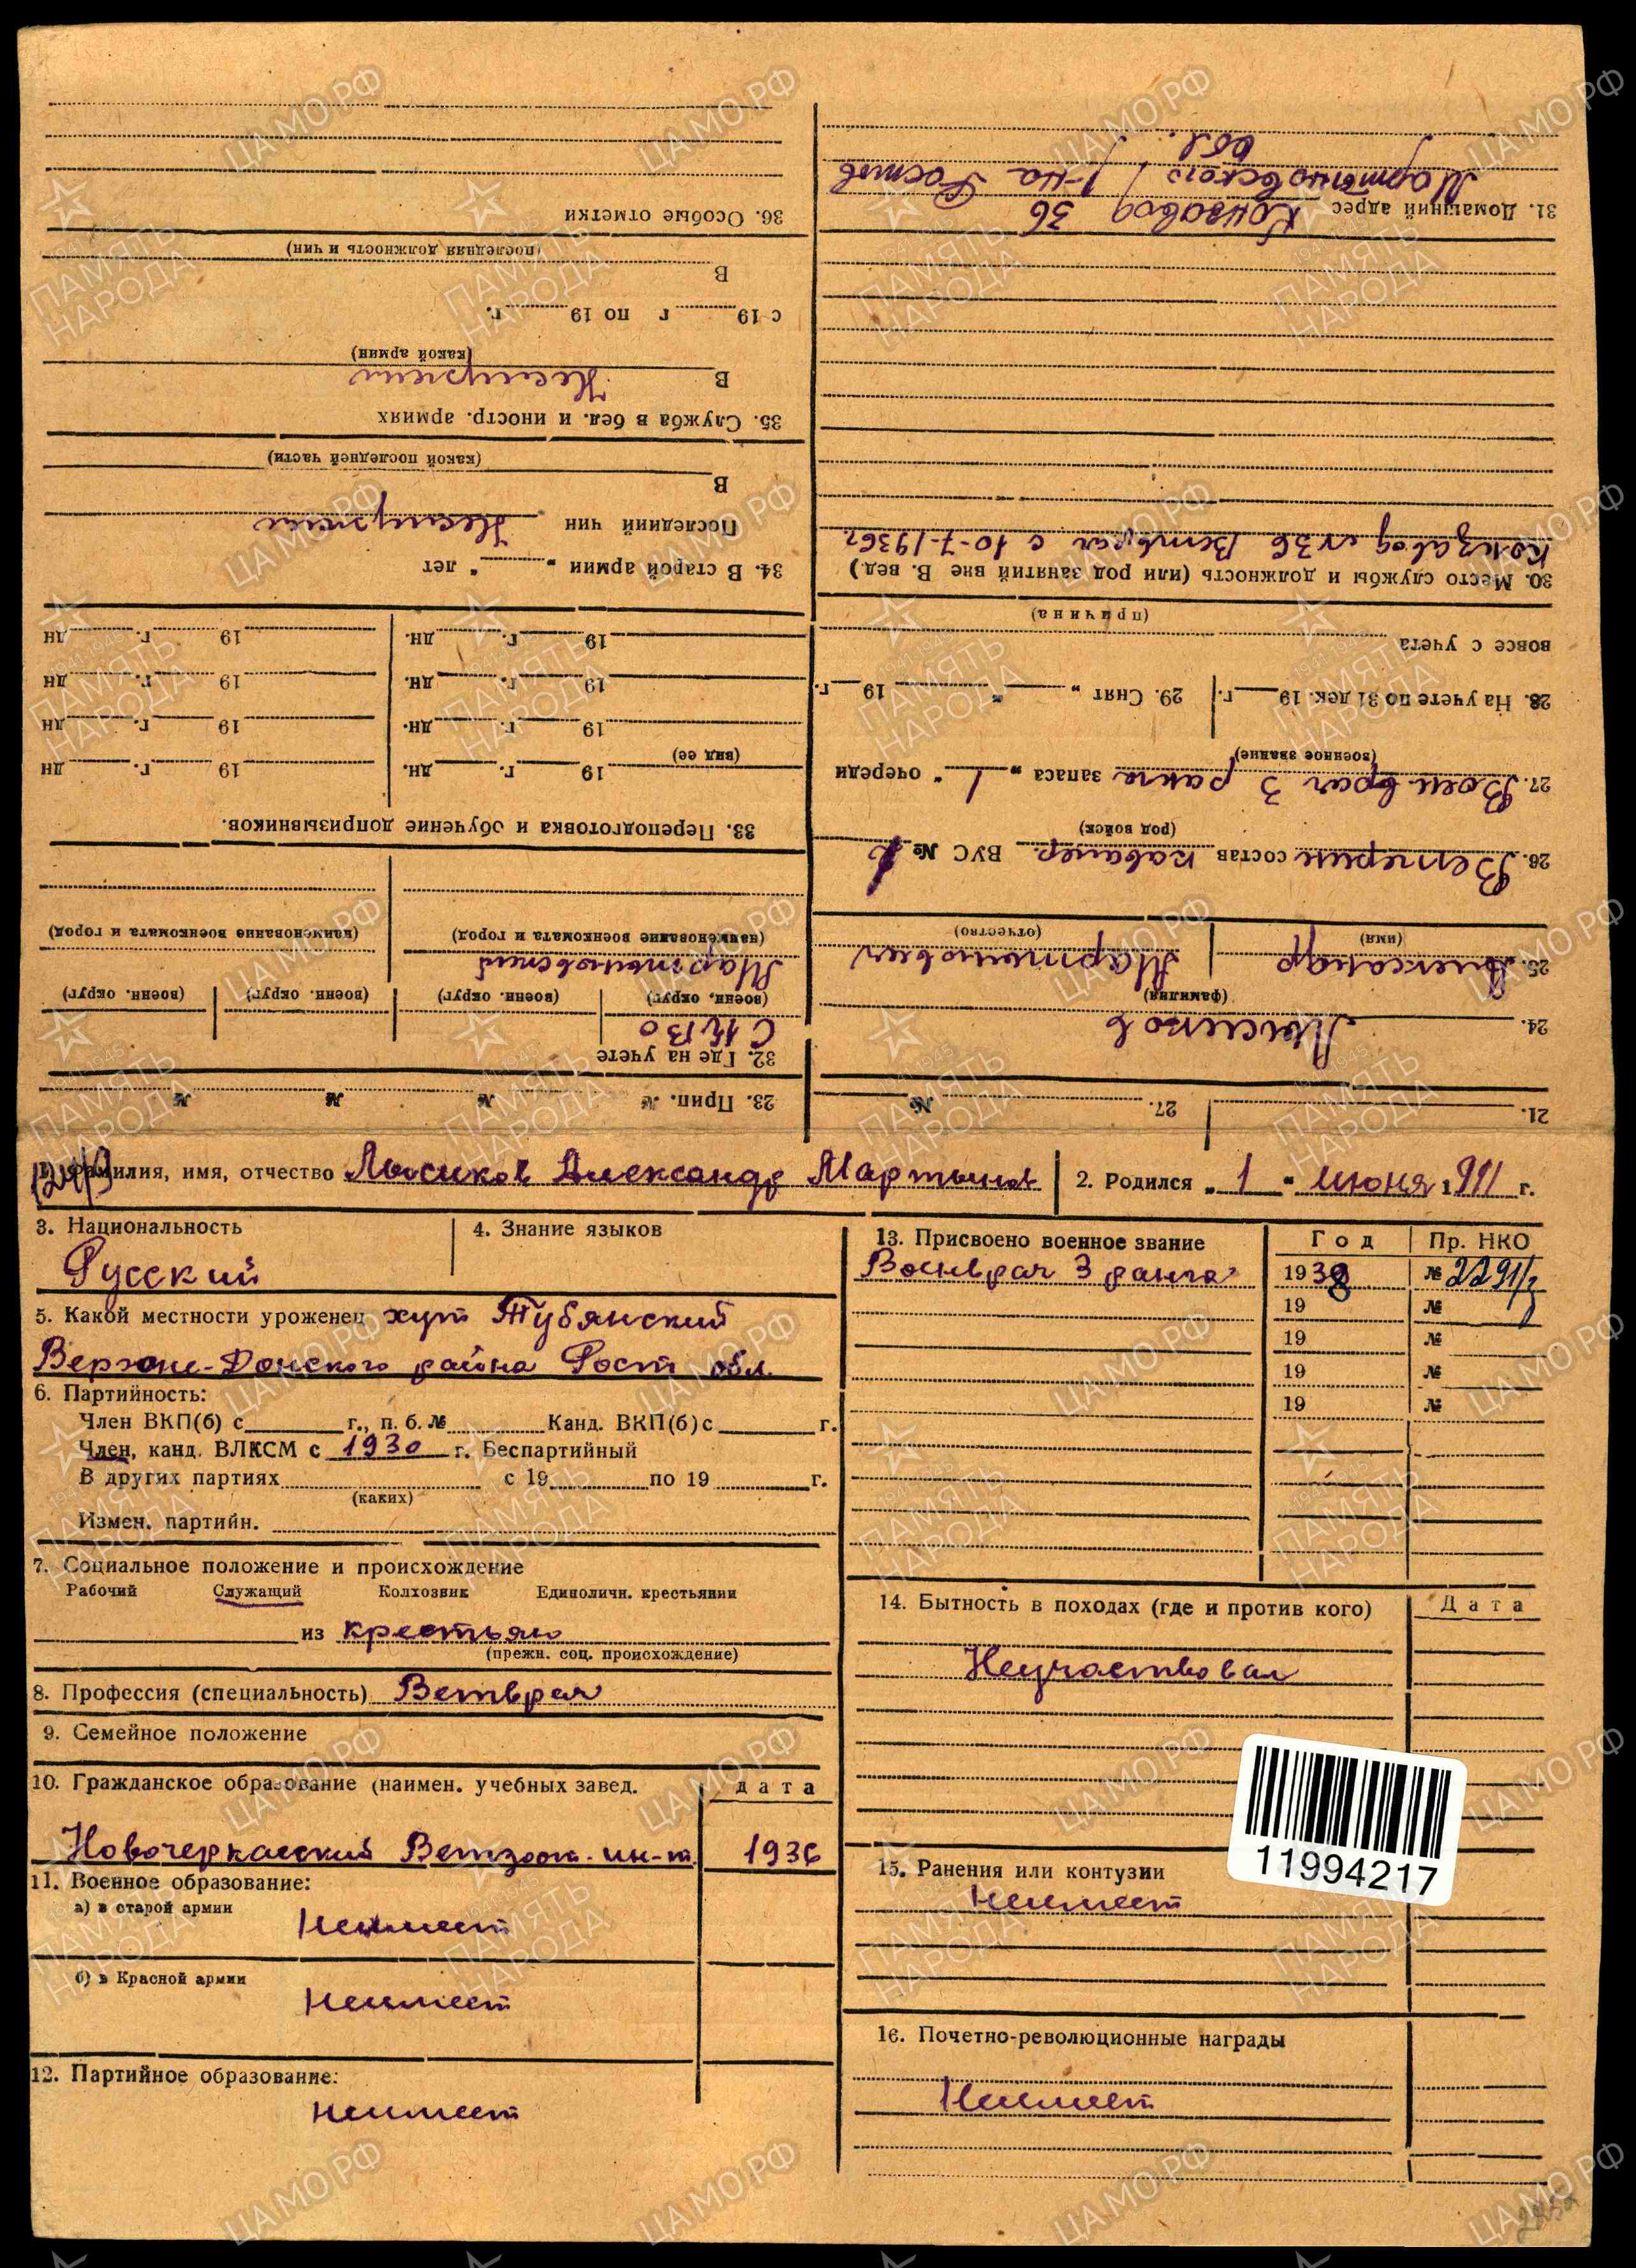 21. 27. №
24. Лысиков
(фамилия)
25. Александр Мартынович
(имя) (отчество)
26. Ветерин состав кавалер. ВУС №
(род войск)
27. Воен. врач 3 ранга запаса „1" очереди
(военное звание)
28. На учете по 31 дек. 19 г. 29. Снят „ " 19 г.
вовсе с учета
(причина)
30. Место службы и должность (или род занятий вне В. вед.)
Конзавод №36 Ветврач с 10-7-1936г.
31. Домашний адрес Конзавод 36
Мартыновского р-на Ростов
обл.
23. Прип. № № № №
32. Где на учете
СКВО
(военн. округ) (военн. округ) (военн. округ) (военн. округ)
Мартыновский
(наименование военкомата и город) (наименование военкомата и город)
33. Переподготовка и обучение допризывников.
19 г. дн. 19 г. дн
(вид ее)
19 г. дн. 19 г. дн
19 г. дн. 19 г. дн
19 г. дн. 19 г. дн
34. В старой армии „ " лет
Последний чин Неслужил
В
(какой последней части)
35. Служба в бел. и иностр. армиях
В Неслужил
(какой армии)
с 19 г по 19 г.
В
(последняя должность и чин)
36. Особые отметки
1. Фамилия, имя, отчество Лысиков Александр Мартынов 2. Родился „1" июня 1911 г.
3. Национальность 4. Знание языков
Русский
5. Какой местности уроженец хут Тубянский
Верхне-Донского района Рост обл.
6. Партийность:
Член ВКП(б) с г., п. б. № Канд. ВКП(б) с г.
Член, канд. ВЛКСМ с 1930 г. Беспартийный
В других партиях с 19 по 19 г.
(каких)
Измен. партийн.
7. Социальное положение и происхождение
Рабочий Служащий Колхозник Единоличн. крестьянин
из крестьян
(прежн. соц. происхождение)
8. Профессия (специальность) Ветврач
9. Семейное положение
10. Гражданское образование (наимен. учебных завед. дата
Новочеркасский Ветзоот. ин-т. 1936
11. Военное образование:
а) в старой армии
Неимеет
б) в Красной армии
Неимеет
12. Партийное образование:
неимеет
13. Присвоено военное звание Год Пр. НКО
Военврач 3 ранга 1938 №
19 №
19 №
19 №
19 №
14. Бытность в походах (где и против кого) Дата
Неучаствовал
15. Ранения или контузии
неимеет
16. Почетно-революционные награды
Неимеет
11994217
ЦАМО.РФ
ПАМЯТЬ
НАРОДА
1941-1945